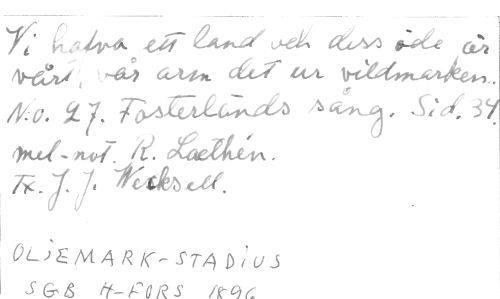 Vi hafva ett land och dess öde är
vårt, vår arm det ur vildmarken..
No. 27. Fosterlands sång. Sid. 34.
mel-not. R. Laethén.
Tx. J. J. Wecksell.
OLiEMARK-STADiUS
SGB H-FORS 1896